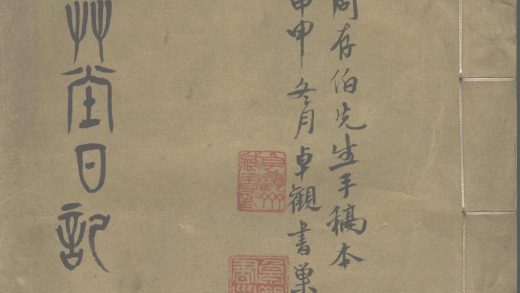 周存伯先生手稿本
甲申冬月卓觀書巢
草堂日記